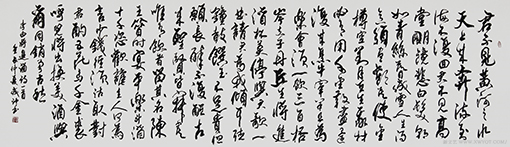 君不見黃河之水
天上來奔流到
海不復回君不見高
堂明鏡悲白髮朝
如青絲暮成雪人生
得意須盡歡莫使金
樽空對月天生我材
必有用千金散盡還
復來烹羊宰牛且為
樂會須一飲三百杯
岑夫子丹丘生將進
酒杯莫停與君歌一
曲請君為我傾耳聽
鐘鼓饌玉不足貴但
願長醉不復醒古
來聖賢皆寂寞
惟有飲者留其名陳
王昔時宴平樂斗酒
十千恣歡謔主人何為
言少錢徑須沽取對
君酌五花馬千金裘
呼兒將出換美酒與
爾同銷萬古愁
李白將進酒